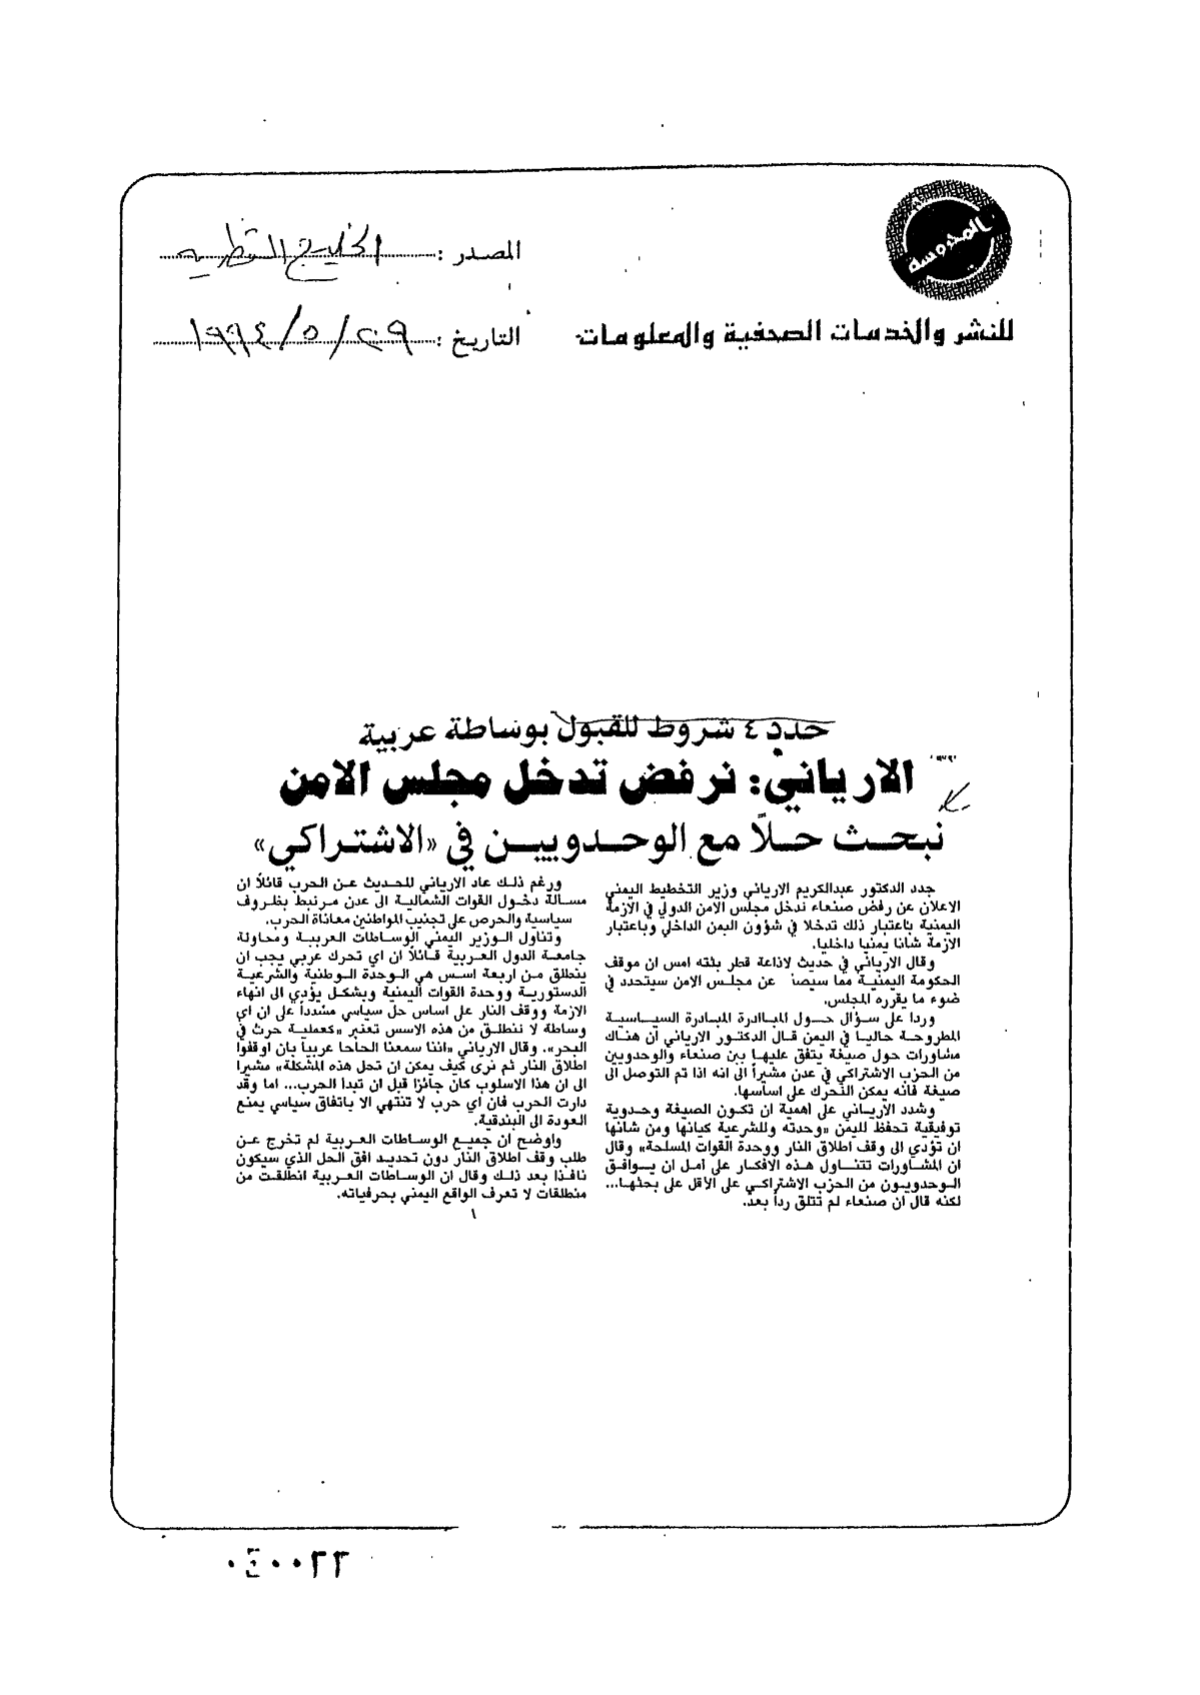 المحروسة
للنشر والخدمات الصحفية والمعلومات
المصدر : الخليج القطرية
التاريخ : ٢٩ / ٥ / ١٩٩٤
حدد ٤ شروط للقبول بوساطة عربية
الارياني: نرفض تدخل مجلس الامن
نبحث حلاً مع الوحدويين في «الاشتراكي»
جدد الدكتور عبدالكريم الارياني وزير التخطيط اليمني
الاعلان عن رفض صنعاء تدخل مجلس الامن الدولي في الازمة
اليمنية باعتبار ذلك تدخلا في شؤون اليمن الداخلي وباعتبار
الازمة شانا يمنيا داخليا.
وقال الارياني في حديث لاذاعة قطر بثته امس ان موقف
الحكومة اليمنية مما سيصد عن مجلس الامن سيتحدد في
ضوء ما يقرره المجلس.
وردا على سؤال حول المباادرة المبادرة السياسية
المطروحة حاليا في اليمن قال الدكتور الارياني ان هناك
مشاورات حول صيغة يتفق عليها بين صنعاء والوحدويين
من الحزب الاشتراكي في عدن مشيراً الى انه اذا تم التوصل الى
صيغة فانه يمكن التحرك على اساسها.
وشدد الارياني على اهمية ان تكون الصيغة وحدوية
توفيقية تحفظ لليمن «وحدته وللشرعية كيانها ومن شانها
ان تؤدي الى وقف اطلاق النار ووحدة القوات المسلحة» وقال
ان المشاورات تتناول هذه الافكار على امل ان يوافق
الوحدويون من الحزب الاشتراكي على الاقل على بحثها...
لكنه قال ان صنعاء لم تتلق رداً بعد.
ورغم ذلك عاد الارياني للحديث عن الحرب قائلاً ان
مسالة دخول القوات الشمالية الى عدن مرتبط بظروف
سياسية والحرص على تجنيب المواطنين معاناة الحرب.
وتناول الوزير اليمني الوساطات العربية ومحاولة
جامعة الدول العربية قائلاً ان اي تحرك عربي يجب ان
ينطلق من اربعة اسس هي الوحدة الوطنية والشرعية
الدستورية ووحدة القوات اليمنية وبشكل يؤدي الى انهاء
الازمة ووقف النار على اساس حل سياسي مشدداً على ان اي
وساطة لا تنطلق من هذه الاسس تعتبر «كعملية حرث في
البحر». وقال الارياني «اننا سمعنا الحاحا عربياً بان اوقفوا
اطلاق النار ثم نرى كيف يمكن ان تحل هذه المشكلة» مشيرا
الى ان هذا الاسلوب كان جائزا قبل ان تبدا الحرب... اما وقد
دارت الحرب فان اي حرب لا تنتهي الا باتفاق سياسي يمنع
العودة الى البندقية.
واوضح ان جميع الوساطات العربية لم تخرج عن
طلب وقف اطلاق النار دون تحديد افق الحل الذي سيكون
نافذا بعد ذلك وقال ان الوساطات العربية انطلقت من
منطلقات لا تعرف الواقع اليمني بحرفياته.